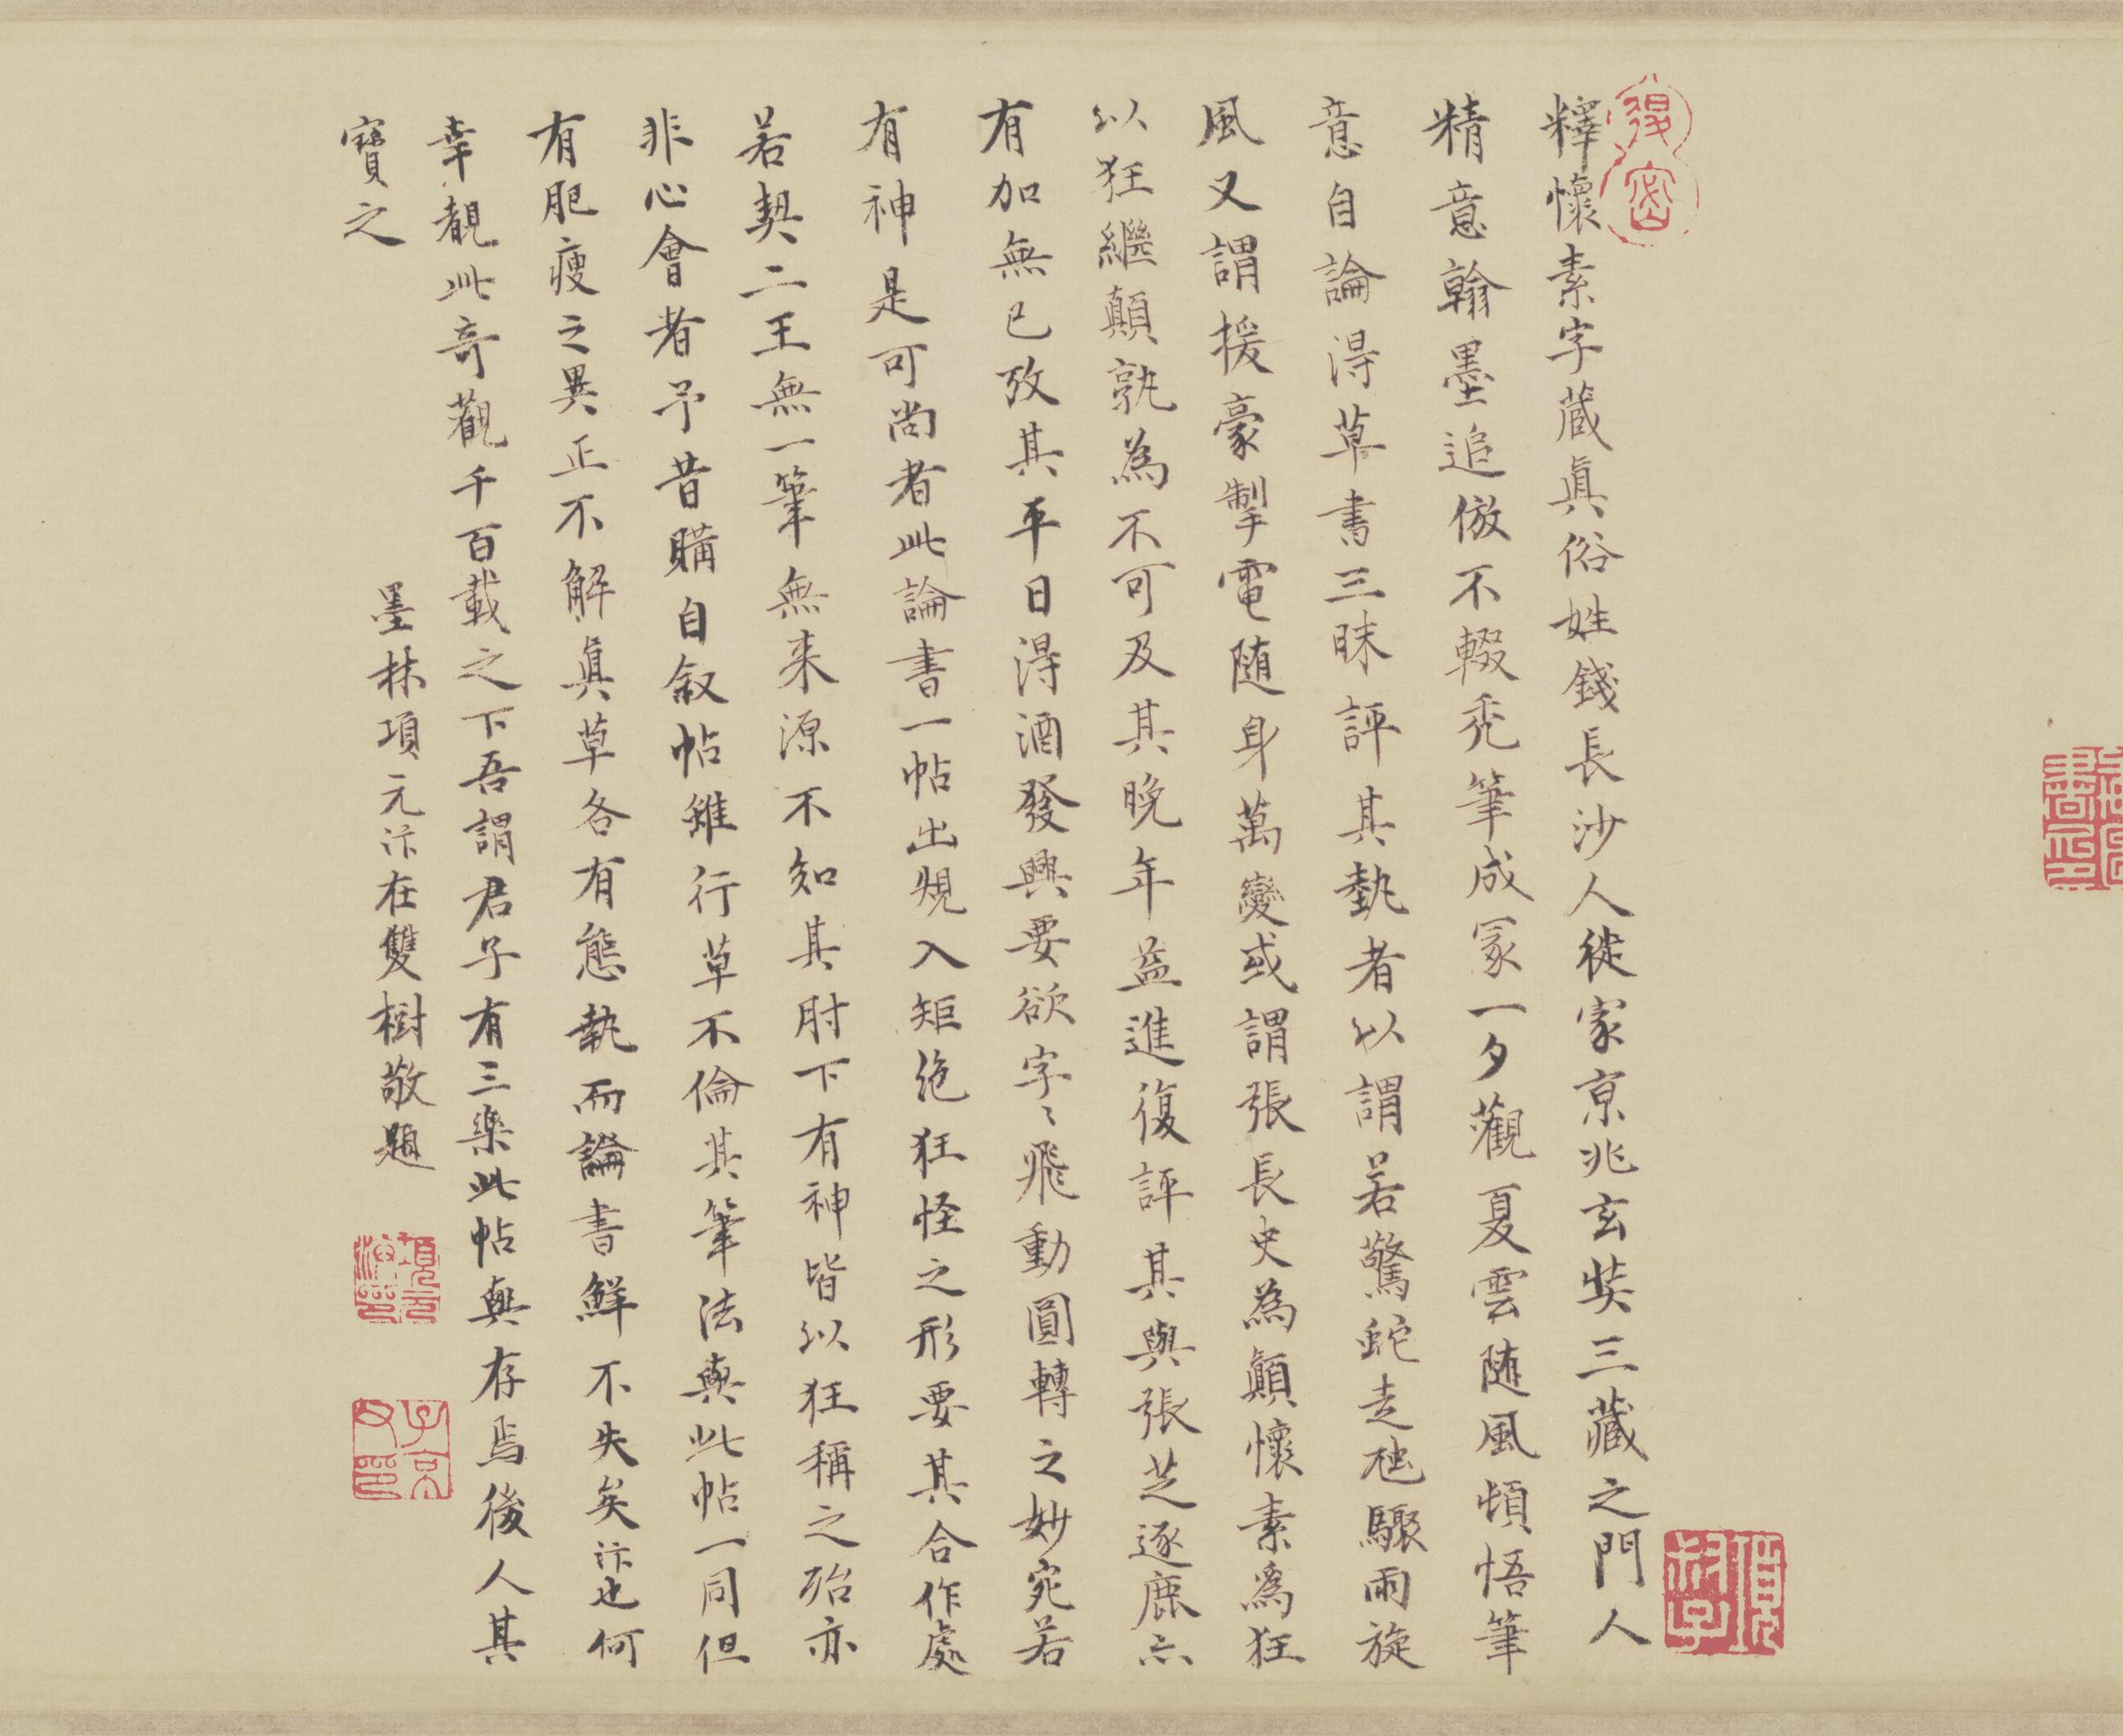 釋懷素字藏眞俗姓錢長沙人徙家京兆玄奘三藏之門人
精意翰墨追倣不輟禿筆成冢一夕觀夏雲随風頓悟筆
意自論得草書三昧評其執者以謂若驚蛇走虺驟雨旋
風又謂援豪掣電随身萬變或謂張長史為顛懷素為狂
以狂繼顛孰為不可及其晚年益進復評其與張芝逐鹿亦
有加無已攷其平日得酒發興要欲字〻飛動圓轉之妙宛若
有神是可尚者此論書一帖出規入矩絶狂怪之形要其合作處
若契二王無一筆無来源不知其肘下有神皆以狂稱之殆亦
非心會者予昔購自叙帖雖行草不倫其筆法與此帖一同但
有肥瘦之異正不解眞草各有態執而論書鮮不失矣汴也何
幸覩此奇觀千百載之下吾謂君子有三樂此帖與存焉後人其
寶之
墨林項元汴在雙樹敬題
項元汴印
子京父印